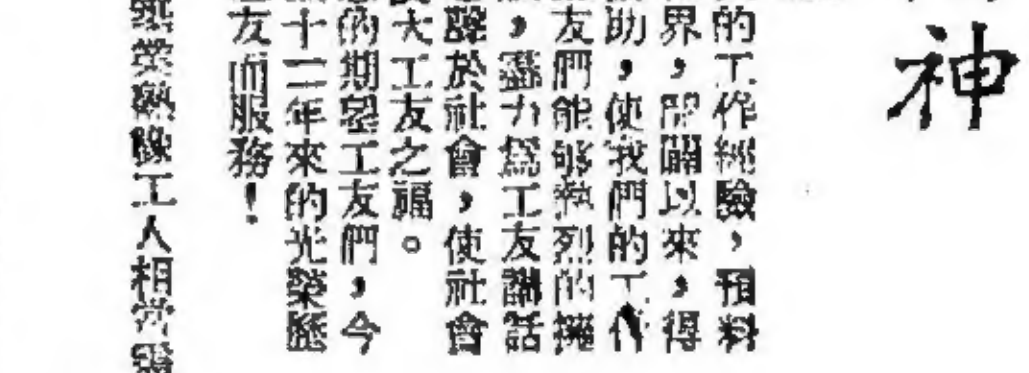 神
的工作經驗,預料
界,開闢以來,得
助,使我們的工作
友們能够熱烈的擁
,盡力爲工友講話
於社會,使社會
大工友之福。
的期望工友們,今
十二年來的光榮歷
友而服務!
業熟練工人相當